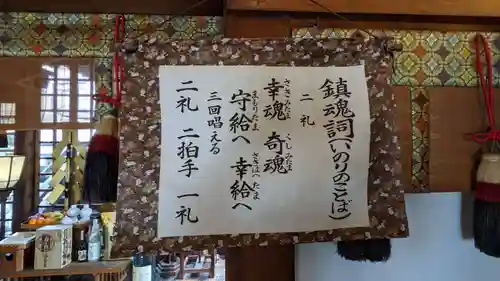 鎮魂詞(いのりのことば)
二礼
幸魂 奇魂
さきみたま くしみたま
守給へ 幸給へ
まもりたま さきはへたま
三回唱える
二礼 二拍手 一礼